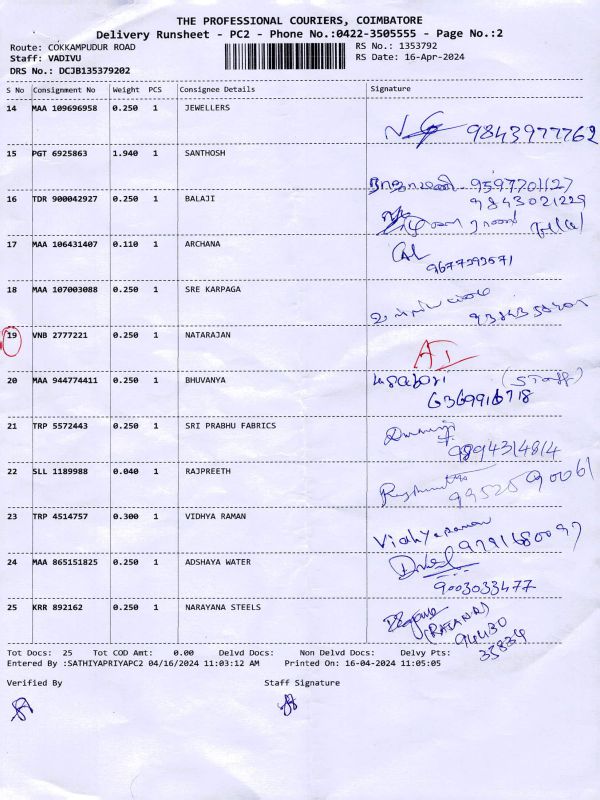 THE PROFESSIONAL COURIERS, COIMBATORE
Delivery Runsheet - PC2 - Phone No.:0422-3505555 - Page No.:2
Route: COKKAMPUDUR ROAD RS No.: 1353792
Staff: VADIVU RS Date: 16-Apr-2024
DRS No.: DCJB135379202
S No Consignment No Weight PCS Consignee Details Signature
14 MAA 109696958 0.250 1 JEWELLERS
9843977762
15 PGT 6925863 1.940 1 SANTHOSH
9597701127
16 TDR 900042927 0.250 1 BALAJI
9843021229
17 MAA 106431407 0.110 1 ARCHANA
9677292571
18 MAA 107003088 0.250 1 SRE KARPAGA
19 VNB 2777221 0.250 1 NATARAJAN
AI
20 MAA 944774411 0.250 1 BHUVANYA
(STAFF)
6369916718
21 TRP 5572443 0.250 1 SRI PRABHU FABRICS
9894314814
22 SLL 1189988 0.040 1 RAJPREETH
9952590061
23 TRP 4514757 0.300 1 VIDHYA RAMAN
Vidhyaraman
9791680097
24 MAA 865151825 0.250 1 ADSHAYA WATER
9003033477
25 KRR 892162 0.250 1 NARAYANA STEELS
(RAJANA)
94430
35834
Tot Docs: 25 Tot COD Amt: 0.00 Delvd Docs: Non Delvd Docs: Delvy Pts:
Entered By :SATHIYAPRIYAPC2 04/16/2024 11:03:12 AM Printed On: 16-04-2024 11:05:05
Verified By Staff Signature